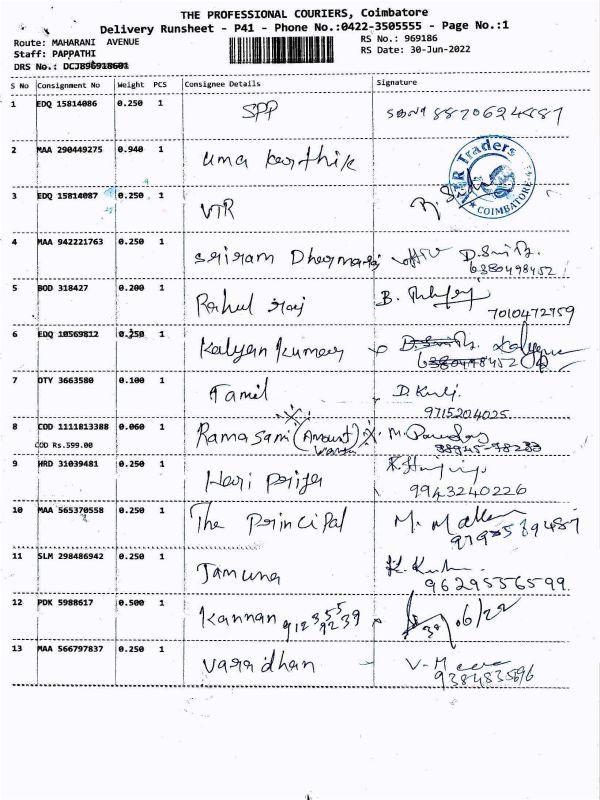 THE PROFESSIONAL COURIERS, Coimbatore
Delivery Runsheet - P41 - Phone No.:0422-3505555 - Page No.:1
Route: MAHARANI AVENUE
RS No.: 969186
Staff: PAPPATHI
RS Date: 30-Jun-2022
DRS No.: DCJ896918601
S No Consignment No Weight PCS Consignee Details Signature
1 EDQ 15814086 0.250 1 SPP 8870624887
2 MAA 290449275 0.940 1 uma karthik
MTR Traders COIMBATORE
3 EDQ 15814087 0.250 1 VTR
4 MAA 942221763 0.250 1 sriram Dharmaraj
6380498452
5 BOD 318427 0.200 1 Rahul raj B.
7010472759
6 EDQ 10569812 0.250 1 Kalyan kumar
6380498452
7 DTY 3663580 0.100 1 Tamil D.
9715204025
8 COD 1111813388 0.060 1 Ramasami (Amount) M.
COD Rs.599.00
9 HRD 31039481 0.250 1 Hari priya
9943240226
10 MAA 565370558 0.250 1 The Principal M.
11 SLM 298486942 0.250 1 Jamuna K.
9629556599
12 PDK 5988617 0.500 1 Kannan
13 MAA 566797837 0.250 1 Varadhan V-
9384835696